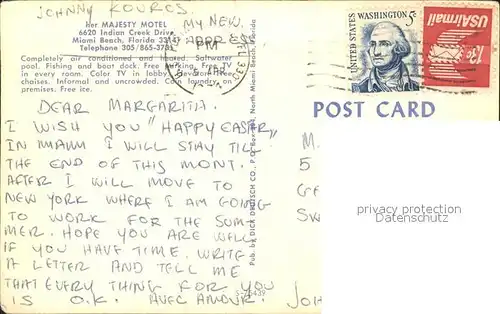 JOHNNY KOUROS
MY NEW
ADDRESS
Her MAJESTY MOTEL
6620 Indian Creek Drive
Miami Beach, Florida 33147
Telephone 305/865-3781
Completely air conditioned and heated. Saltwater
pool. Fishing and boat dock. Free Parking. Free TV
in every room. Color TV in lobby. Elevator.
chaises. Informal and uncrowded. Coin laundry on
premises. Free ice.
PM
UNITED STATES
WASHINGTON 5c
13c
USAirmail
POST CARD
DEAR MARGARITA.
I WISH YOU "HAPPY EASTER"
IN MIAMI I WILL STAY TILL
THE END OF THIS MONT.
AFTER I WILL MOVE TO
NEW YORK WHERE I AM GOING
TO WORK FOR THE SUM-
MER. HOPE YOU ARE WELL
IF YOU HAVE TIME. WRITE
A LETTER AND TELL ME
THAT EVERY THING FOR YOU
IS O.K. AVEC AMOUR.
JOH
Pub. by DICK DEUTSCH CO., P.O. Box, North Miami Beach, Florida
M.
5
GE
SW
privacy protection
Datenschutz